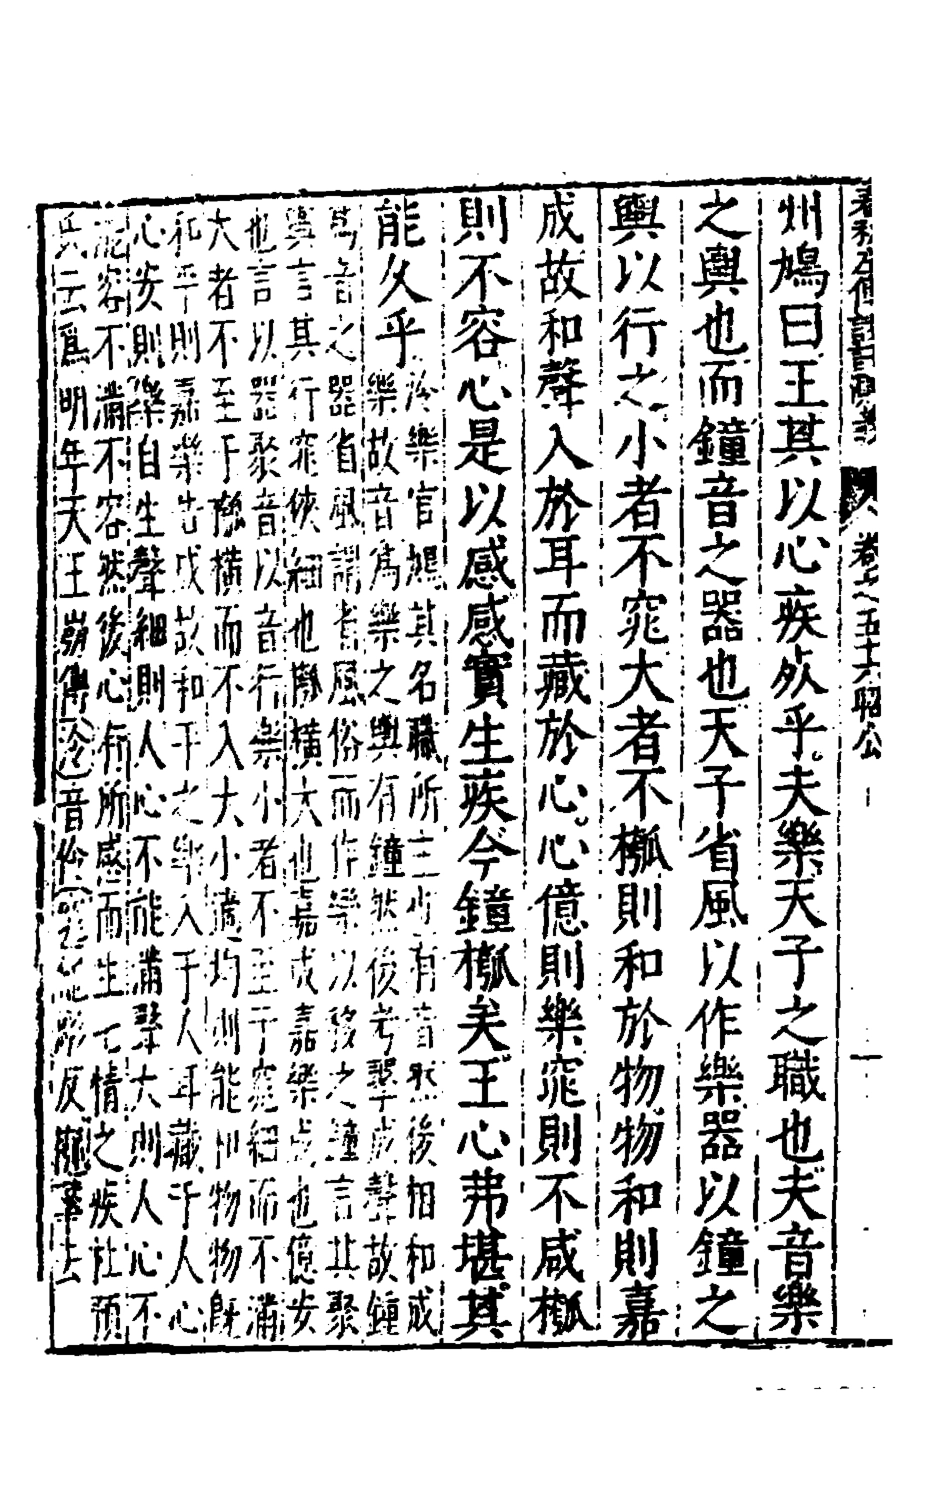 春秋左傳 卷之五十六 昭公
州鳩曰王其以心疾死乎夫樂天子之職也夫音樂
之輿也而鐘音之器也天子省風以作樂器以鐘之
輿以行之小者不窕大者不槬則和於物物和則嘉
成故和聲入於耳而藏於心心億則樂窕則不咸槬
則不容心是以感感實生疾今鐘槬矣王心弗堪其
能久乎
泠樂官鳩其名職所主也有音然後相和成
樂故音為樂之輿有鐘然後考擊成聲故鐘
為音之器省風謂省風俗而作樂以移之鐘言其聚
輿言其行窕俠細也槬橫大也嘉成嘉樂成也億安
也言以器聚音以音行樂小者不至于窕細而不滿
大者不至于槬橫而不入大小適均則能和物物旣
和平則嘉樂告成故和平之聲入于人耳藏于人心
心安則樂自生聲細則人心不能滿聲大則人心不
能容不滿不容然後心有所感而生七情之疾社預
氏云為明年天王崩傳 泠音伶 反 去